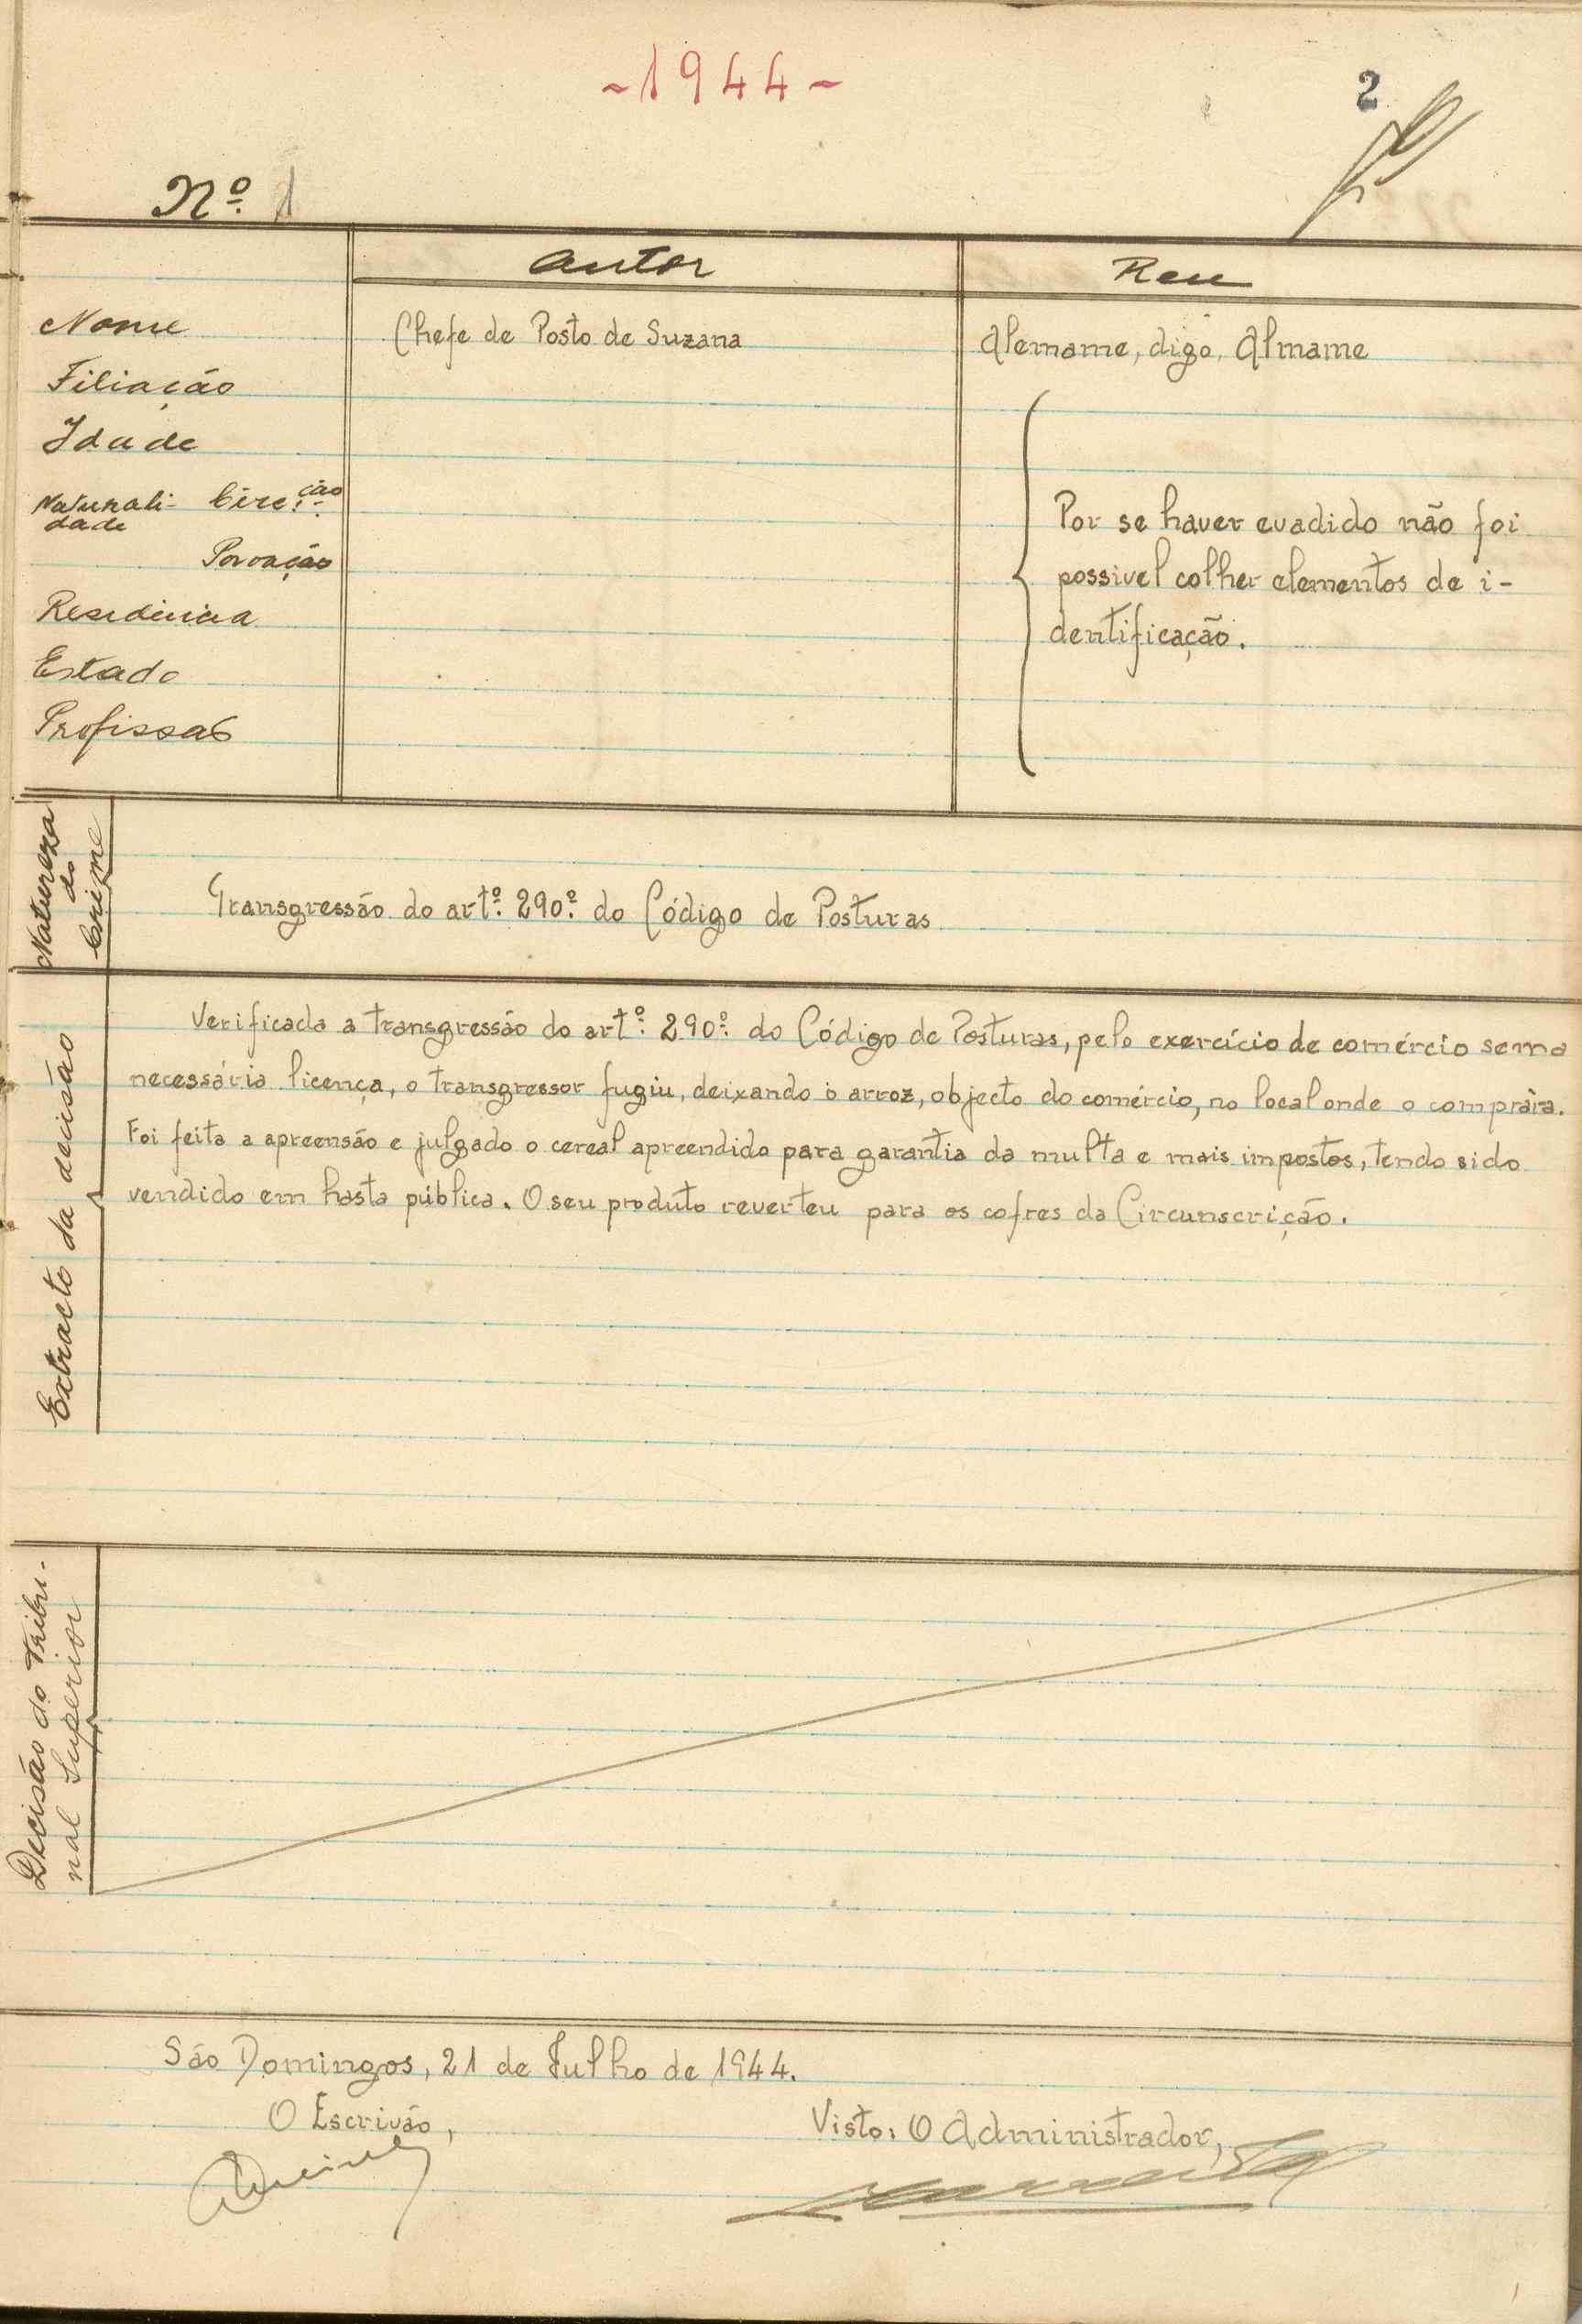 ~1944~
2
Nº 1
Autor
Reu
Nome
Chefe de Posto de Suzana
Alemame, digo, Almame
Filiação
Idade
Naturali-
dade
Circ.ção
Povoação
Residência
Estado
Profissão
Por se haver evadido não foi
possivel colher elementos de i-
dentificação.
Natureza
do
Crime
Transgressão do artº. 290º. do Código de Posturas
Extracto da decisão
Verificada a transgressão do artº. 290º. do Código de Posturas, pelo exercício de comércio sem a
necessária licença, o transgressor fugiu, deixando o arroz, objecto do comércio, no local onde o comprára.
Foi feita a apreensão e julgado o cereal apreendido para garantia da multa e mais impostos, tendo sido
vendido em hasta pública. O seu produto reverteu para os cofres da Circunscrição.
Decisão do Tribu-
nal Superior
São Domingos, 21 de Julho de 1944.
O Escrivão,
Visto: O Administrador,